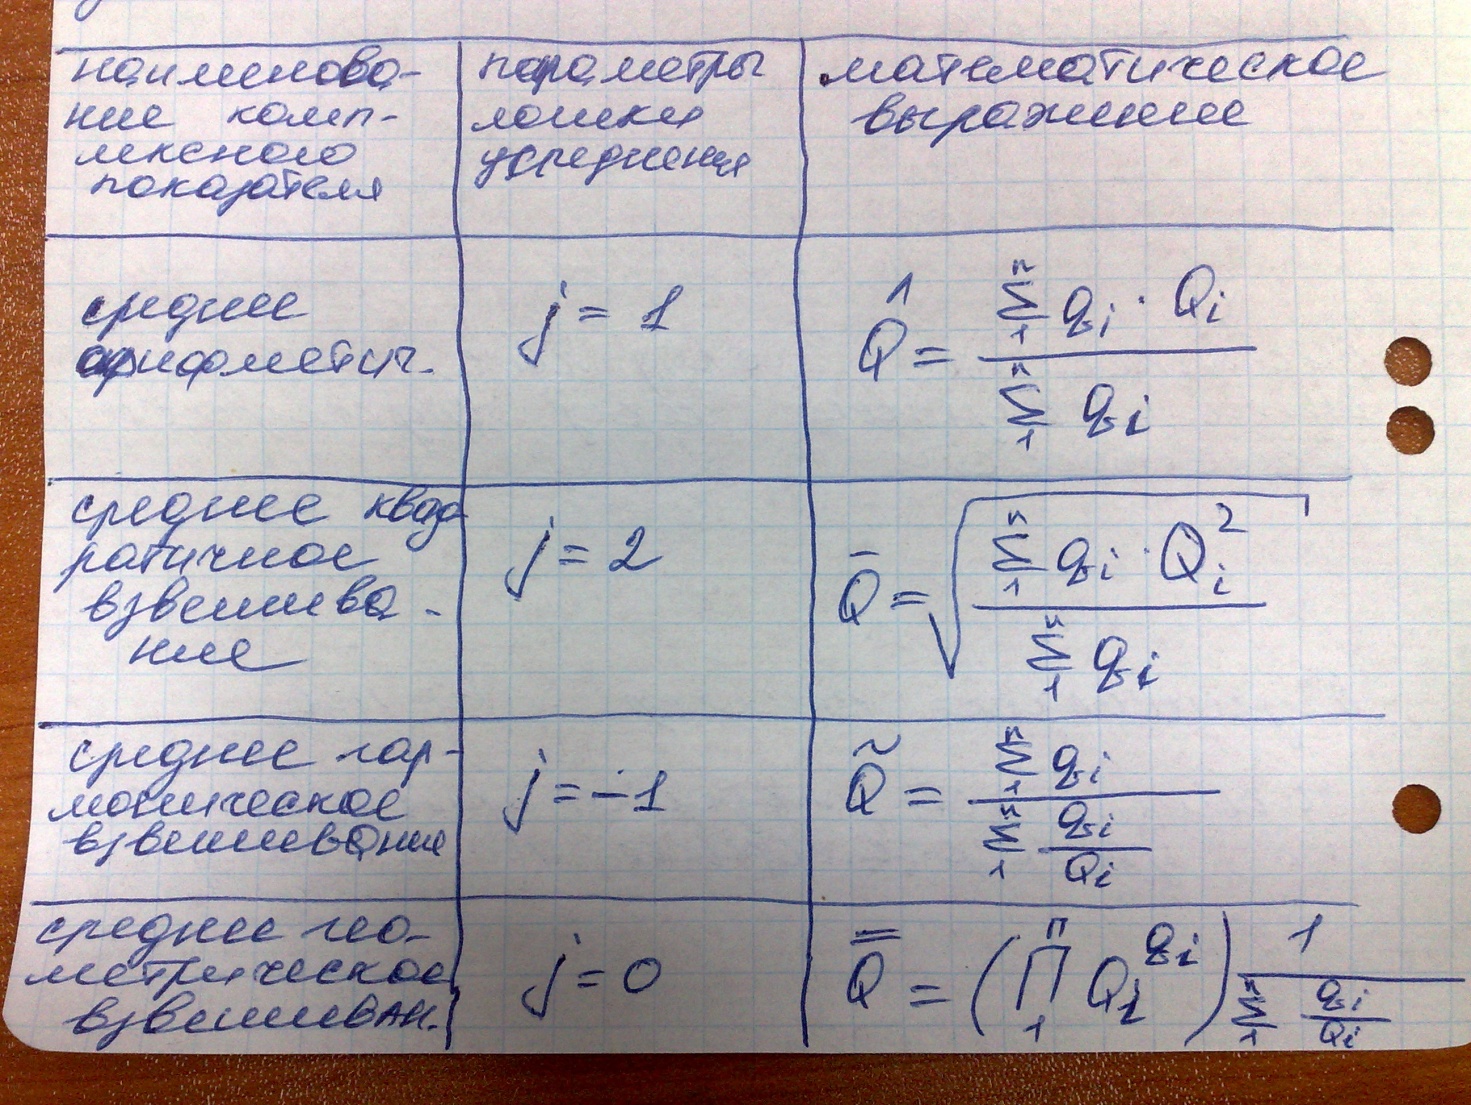 наименова-
ние комп-
лексного
показателя
параметры
логики
усреднения
математическое
выражение
среднее
арифметич.
j = 1
Q̂ = (∑₁ⁿ qᵢ · Qᵢ) / (∑₁ⁿ qᵢ)
среднее квад-
ратичное
взвешива-
ние
j = 2
Q̄ = √((∑₁ⁿ qᵢ · Qᵢ²) / (∑₁ⁿ qᵢ))
среднее гар-
моническое
взвешивание
j = -1
Q̃ = (∑₁ⁿ qᵢ) / (∑₁ⁿ qᵢ/Qᵢ)
среднее гео-
метрическое
взвешиван.
j = 0
Q̿ = (∏₁ⁿ Qᵢ^qᵢ)^(1 / (∑₁ⁿ qᵢ/Qᵢ))